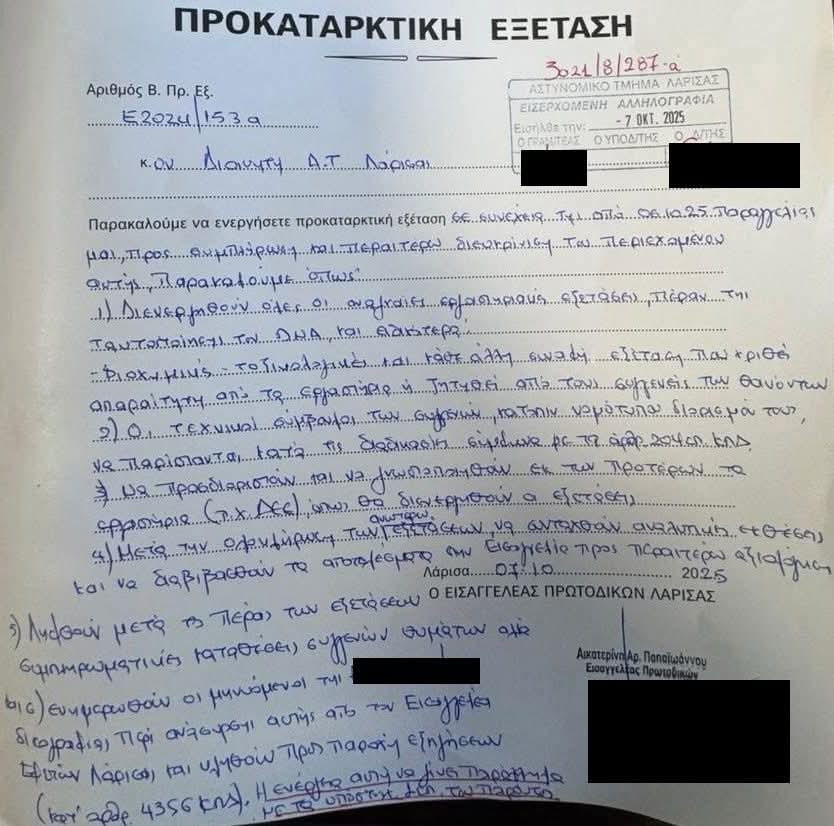 ΠΡΟΚΑΤΑΡΚΤΙΚΗ ΕΞΕΤΑΣΗ
3021/8/287-α
Αριθμός Β. Πρ. Εξ.
Ε2024/153α
ΑΣΤΥΝΟΜΙΚΟ ΤΜΗΜΑ ΛΑΡΙΣΑΣ
ΕΙΣΕΡΧΟΜΕΝΗ ΑΛΛΗΛΟΓΡΑΦΙΑ
Εισήλθε την: - 7 ΟΚΤ. 2025
Ο ΓΡΑΜ/ΤΕΑΣ Ο ΥΠΟΔ/ΤΗΣ Ο Δ/ΤΗΣ
κ. ον Διοικητή Α.Τ Λάρισας
Παρακαλούμε να ενεργήσετε προκαταρκτική εξέταση σε συνέχεια της από 06.10.25 Παραγγελίας
μας, προς συμπλήρωση και περαιτέρω διευκρίνιση του περιεχομένου
αυτής, Παρακαλούμε όπως
1) Διενεργηθούν όλες οι αναγκαίες εργαστηριακές εξετάσεις, πέραν της
ταυτοποίησης του DNA, και ειδικότερα:
- βιοχημικές - τοξικολογικές και κάθε άλλη συναφή εξέταση που κριθεί
απαραίτητη από τα εργαστήρια ή ζητηθεί από τους συγγενείς των θανόντων
2) Οι τεχνικοί σύμβουλοι των συγγενών, κατόπιν νομότυπου διορισμού τους,
να παρίστανται κατά τις διαδικασίες σύμφωνα με το άρθρ. 204 επ ΚΠΔ
3) Να προσδιοριστούν και να γνωστοποιηθούν εκ των προτέρων τα
εργαστήρια (π.χ ΔΕΕ), όπου θα διενεργηθούν οι εξετάσεις
4) Μετά την ολοκλήρωση των ανωτέρω εξετάσεων, να συνταχθούν αναλυτικές εκθέσεις
και να διαβιβασθούν τα αποτελέσματα στην Εισαγγελία προς περαιτέρω αξιολόγηση
Λάρισα 07.10 2025
Ο ΕΙΣΑΓΓΕΛΕΑΣ ΠΡΩΤΟΔΙΚΩΝ ΛΑΡΙΣΑΣ
5) Ληφθούν μετά το πέρας των εξετάσεων
συμπληρωματικές καταθέσεις συγγενών θυμάτων
Αικατερίνη Αρ. Παπαϊωάννου
Εισαγγελέας Πρωτοδικών
6) ενημερωθούν οι μηνυόμενοι της
δικογραφίας περί ανάσυρσης αυτής από τον Εισαγγελέα
Εφετών Λάρισας και κληθούν προς παροχή εξηγήσεων
(κατ' άρθρ. 43§6 ΚΠΔ). Η ενέργεια αυτή να γίνει παράλληλα
με τα υπόστοιχα του παρόντος